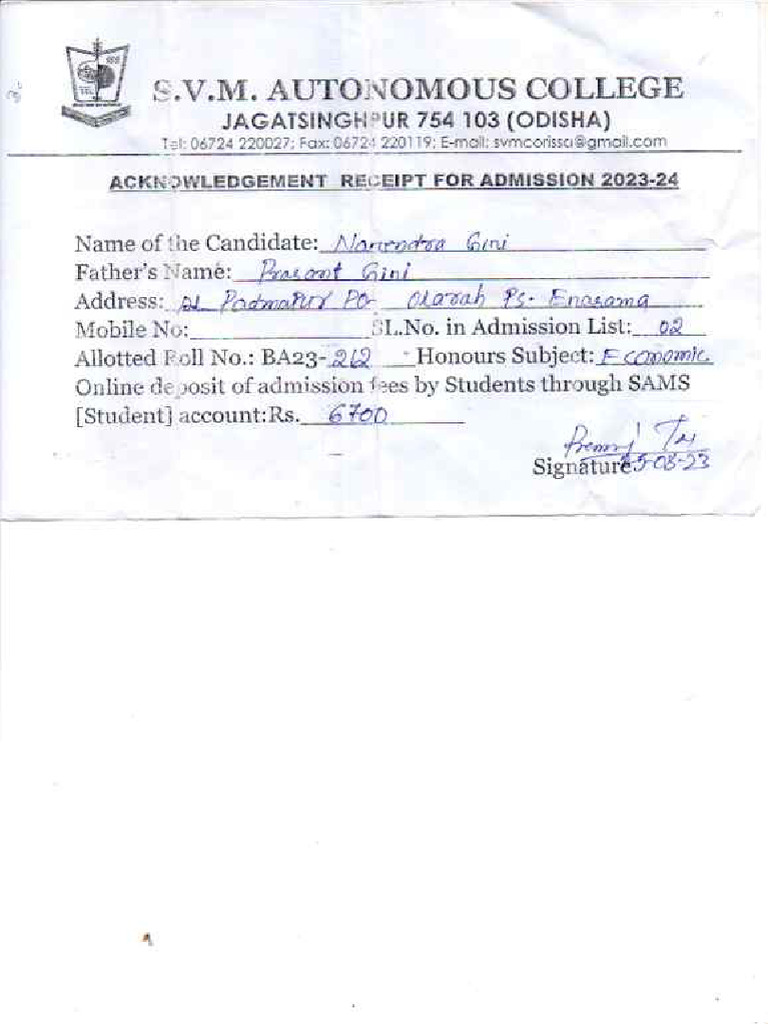 S.V.M. AUTONOMOUS COLLEGE
JAGATSINGHPUR 754 103 (ODISHA)
Tel: 06724 220027; Fax: 06724 220119; E-mail: svmcorissa@gmail.com
ACKNOWLEDGEMENT RECEIPT FOR ADMISSION 2023-24
Name of the Candidate: Narendra Giri
Father's Name: Prasant Giri
Address: At Padmapur Po- Olarah Ps- Erasama
Mobile No: SL.No. in Admission List: 02
Allotted Roll No.: BA23-212 Honours Subject: Economic
Online deposit of admission fees by Students through SAMS
[Student] account:Rs. 6700
Signature 5-08-23